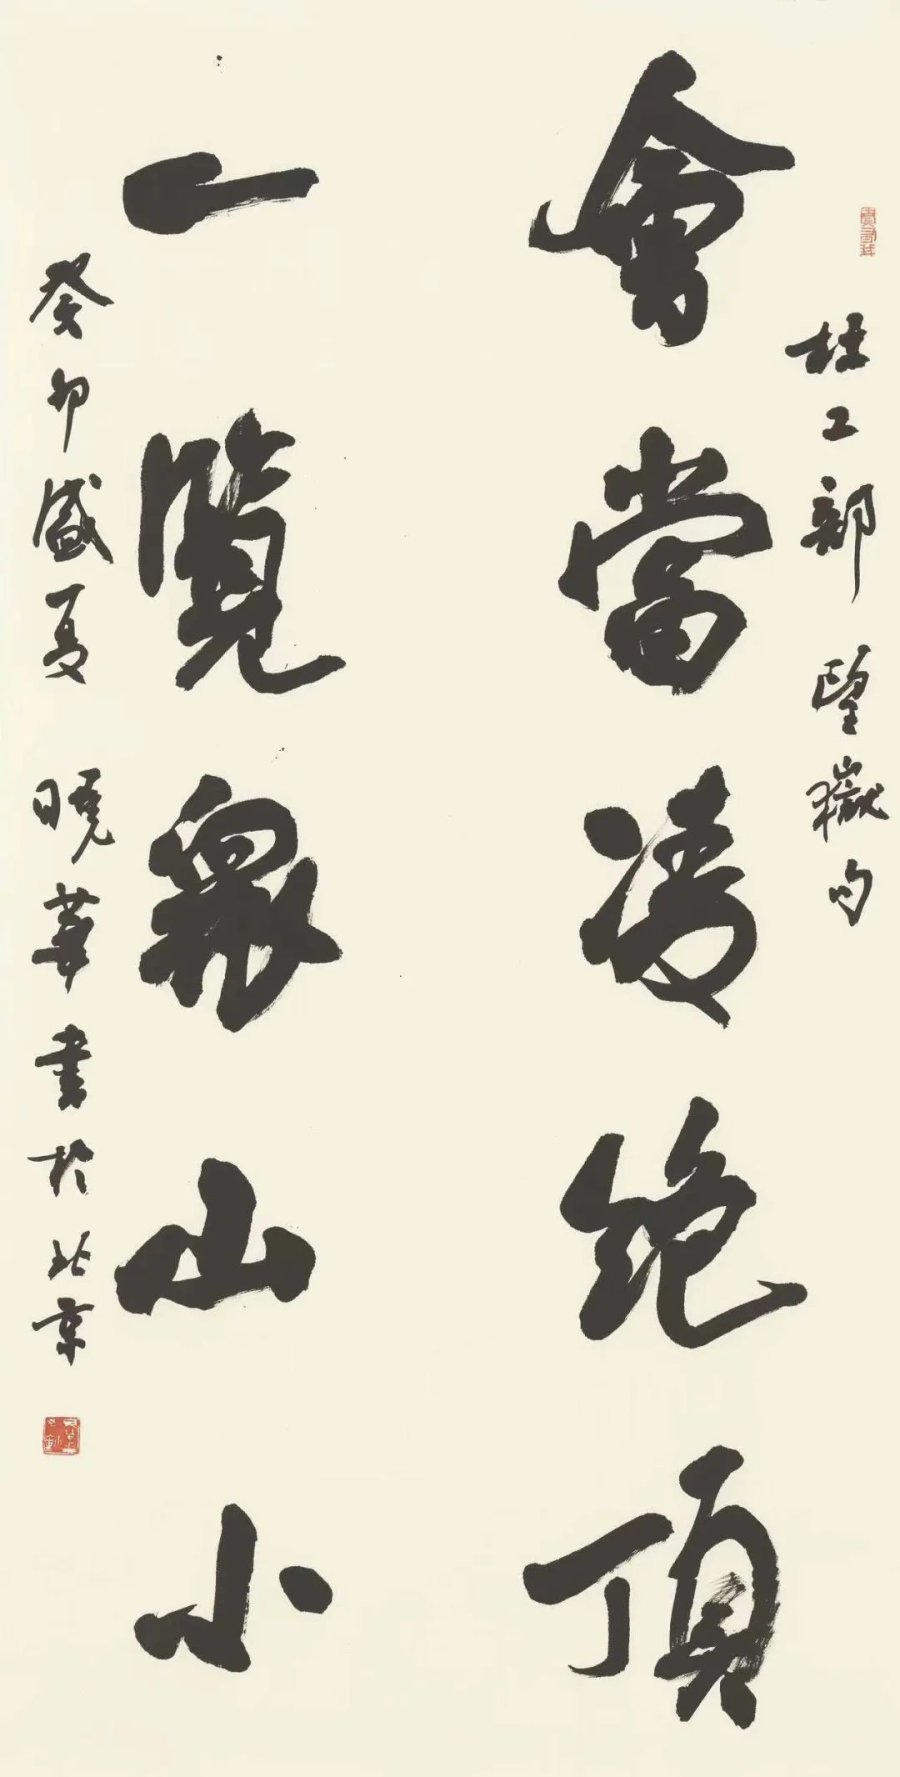 杜工部望嶽句
會當凌絕頂
一覽眾山小
癸卯盛夏曉華書於北京